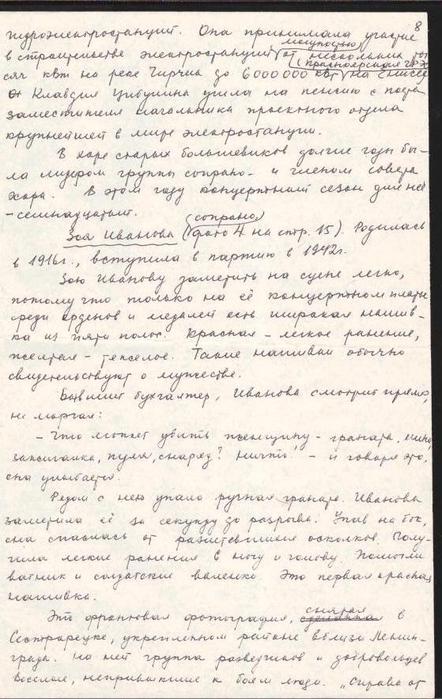 8
гидроэлектростанций. Она принимала участие
в строительстве электростанций мощностью от нескольких тыс
сяч квт на реке Чирчик до 6000000 квт (Красноярская ГЭС) на Енисее
Клавдия Цибулина ушла на пенсию с поста
заместителя начальника проектного отдела
крупнейшей в мире электростанции.
В хоре старых большевиков долгие годы бы-
ла лидером группы сопрано - и членом совета
хора. В этом году концертный сезон для неё
- семнадцатый.
Зоя Иванова (сопрано) (фото 4 на стр. 15). Родилась
в 1916г., вступила в партию в 1942г.
Зою Иванову заметить на сцене легко,
потому что только на её концертном платье
среди орденов и медалей есть широкая нашив-
ка из пяти полос. Красная - легкое ранение,
желтая - тяжелое. Такие нашивки обычно
свидетельствуют о мужестве.
Бывший бухгалтер, Иванова смотрит прямо,
не моргая:
- Что может убить женщину - граната, мина,
зажигалка, пуля, снаряд? Ничто, - и говоря это,
она улыбается.
Рядом с нею упала ручная граната. Иванова
заметила её за секунду до разрыва. Упав на бок,
она спаслась от разлетевшихся осколков. Полу-
чила легкие ранения в ногу и голову. Помогли
ватник и солдатские валенки. Это первая красная
нашивка.
Эта фронтовая фотография, снятая в
Сестрорецке, укрепленном районе вблизи Ленин-
града. На ней группа разведчиков и добровольцев
Веселые, непривыкшие к боям люди. „Справа от